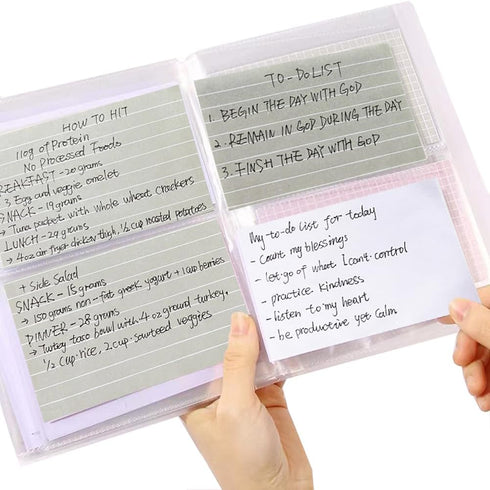 HOW TO HIT
110g of Protein
No Processed Foods
BREAKFAST - 20 grams
3 Egg and veggie omelet
SNACK - 19 grams
→ Tuna packet with whole wheat crackers
LUNCH - 29 grams
→ 4oz air fryer chicken thigh, 1/2 cup roasted potatoes
+ Side Salad
SNACK - 15 grams
→ 150 grams non-fat greek yogurt + 1 cup berries
DINNER - 28 grams
→ Turkey taco bowl with 4 oz ground turkey,
1/2 cup rice, 2 cup sauteed veggies
TO-DO LIST
1. BEGIN THE DAY WITH GOD
2. REMAIN IN GOD DURING THE DAY
3. FINSH THE DAY WITH GOD
My to-do list for today
- Count my blessings
- let go of what I can't control
- practice kindness
- listen to my heart
- be productive yet calm